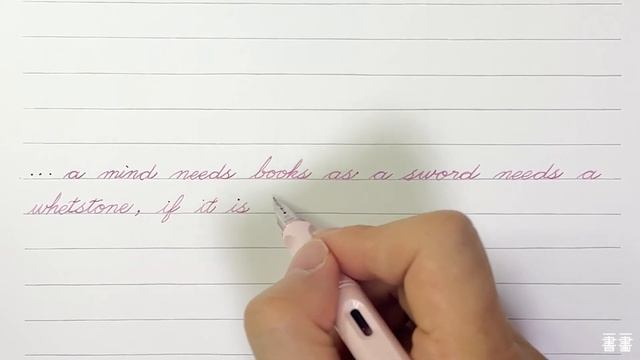 ... a mind needs books as a sword needs a
whetstone, if it is
書畫